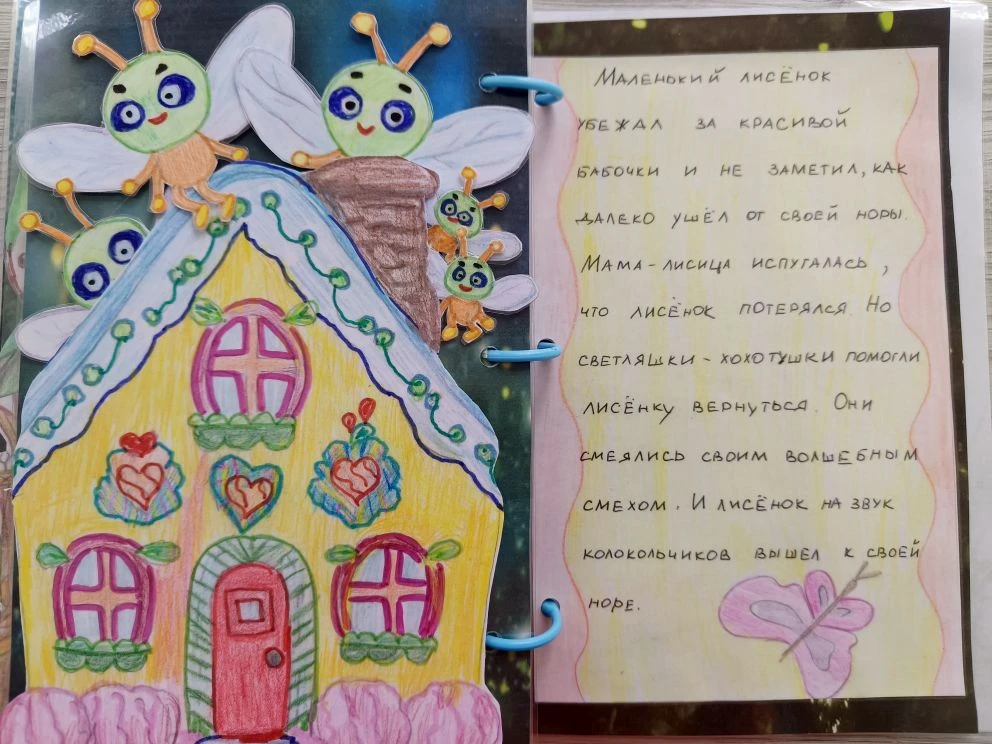 Маленький лисёнок
убежал за красивой
бабочки и не заметил, как
далеко ушёл от своей норы.
Мама-лисица испугалась,
что лисёнок потерялся. Но
светляшки-хохотушки помогли
лисёнку вернуться. Они
смеялись своим волшебным
смехом. И лисёнок на звук
колокольчиков вышел к своей
норе.